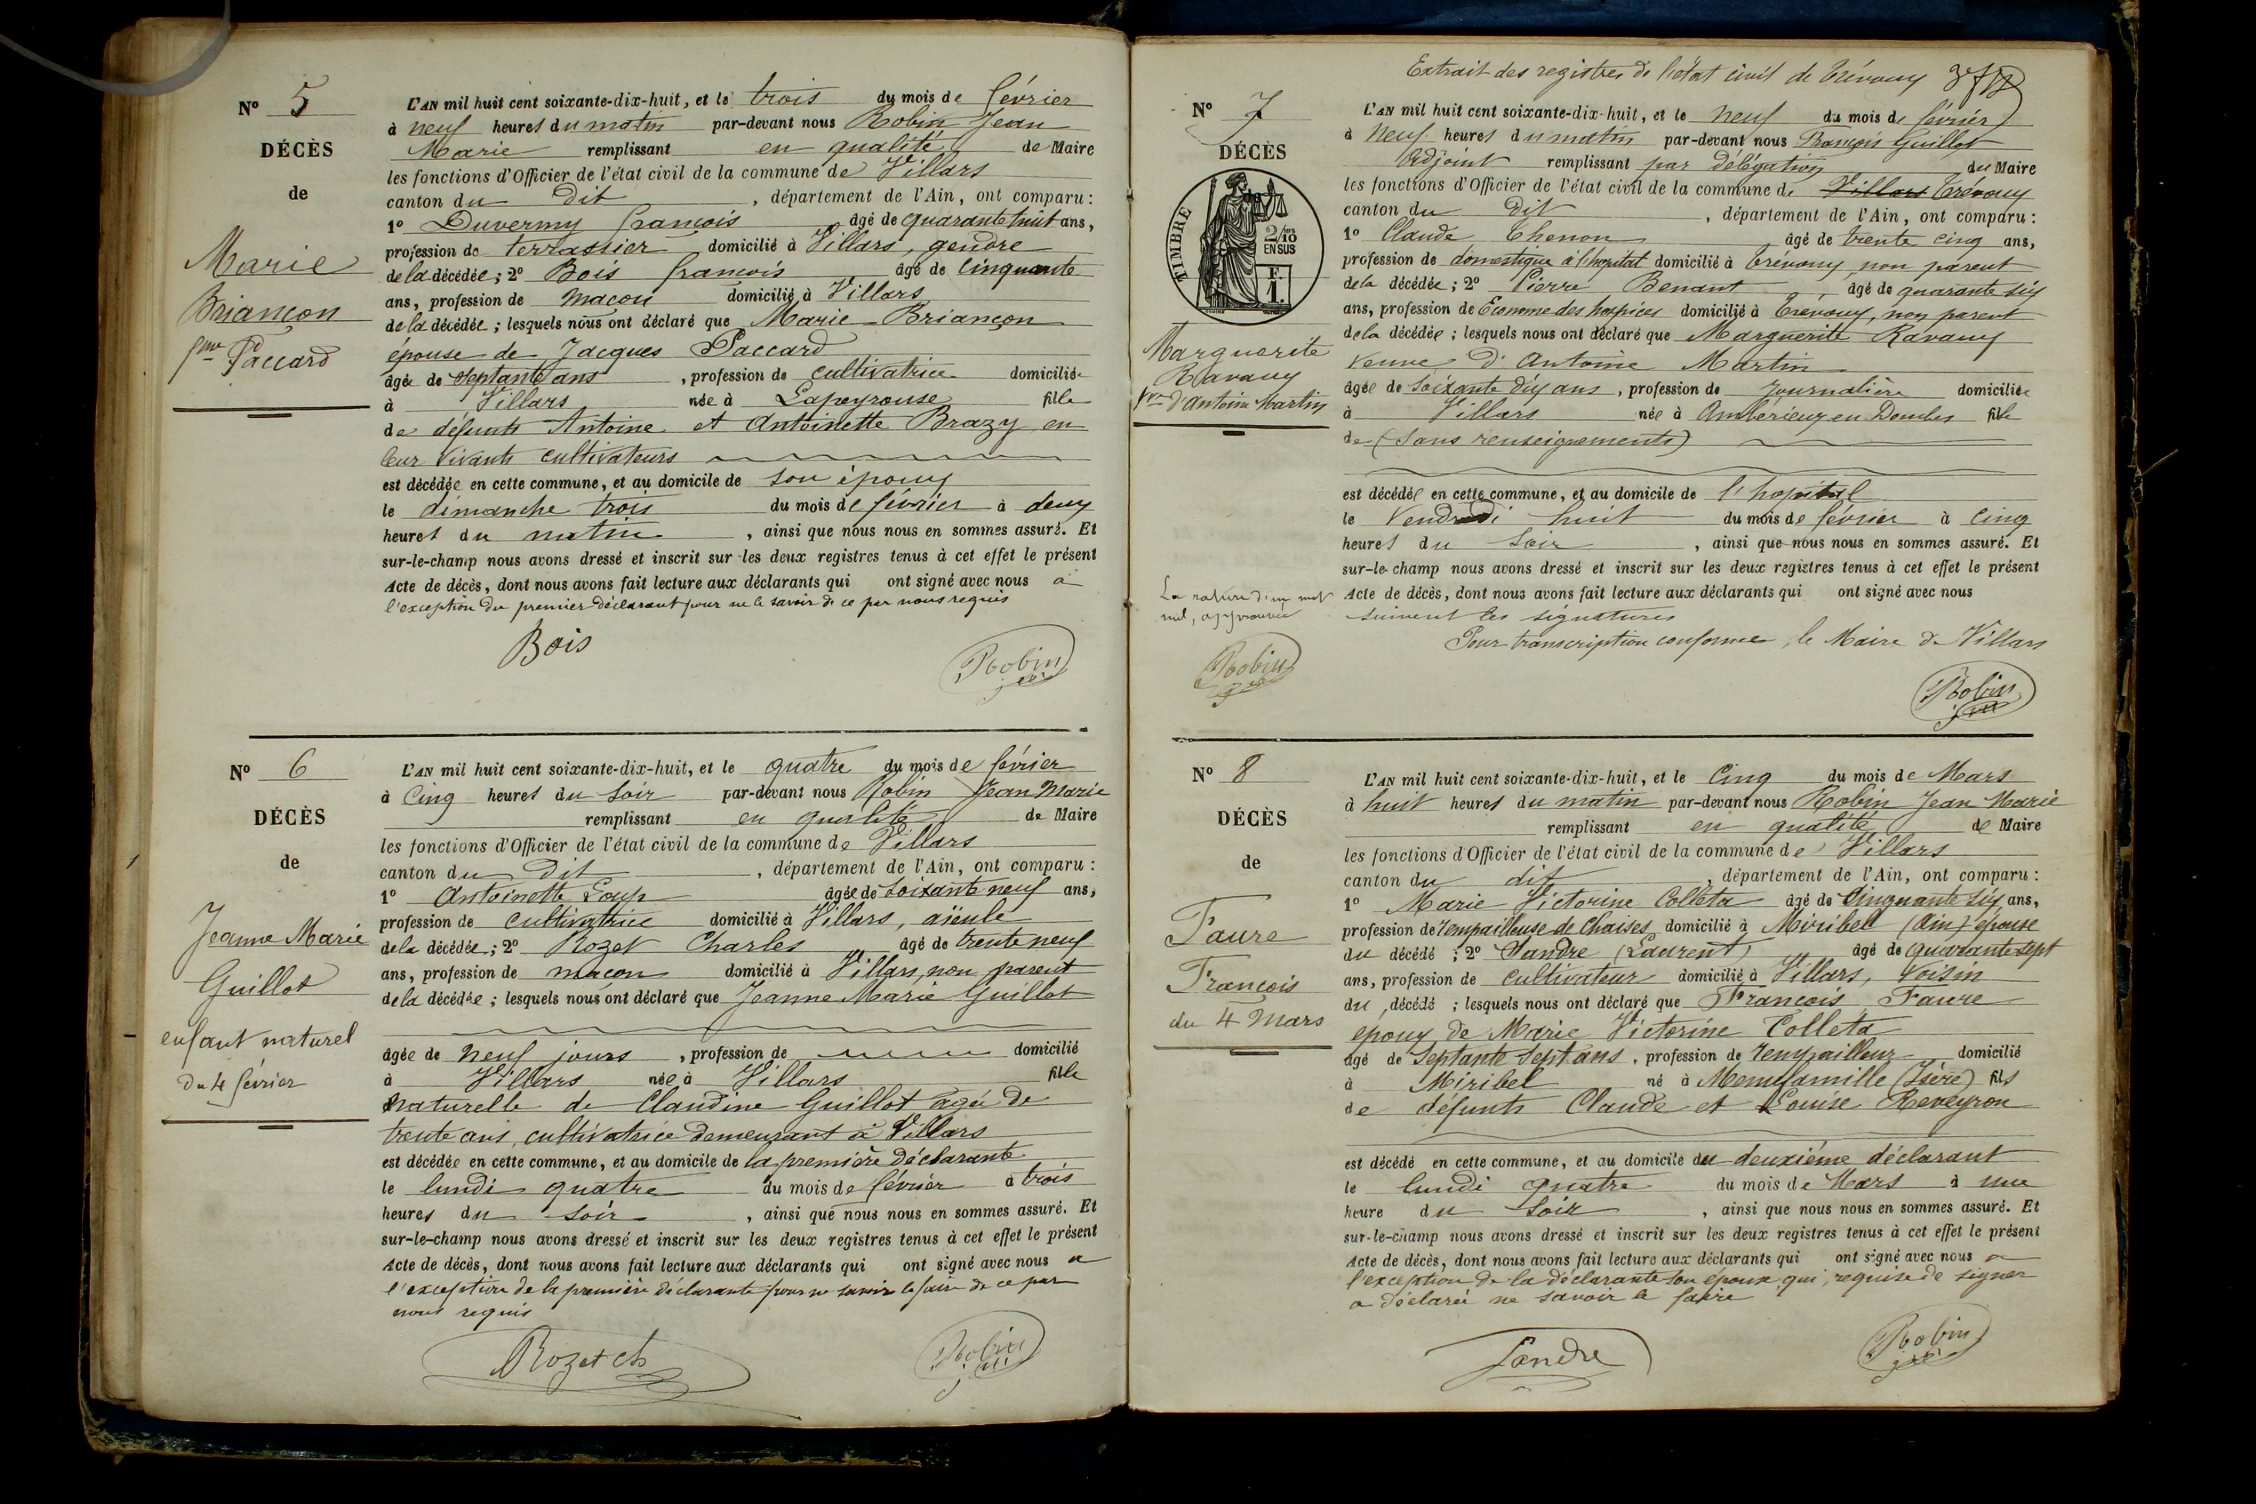 N° 5
DÉCÈS
de
Marie
Briancon
fme Paccard
L'AN mil huit cent soixante-dix-huit, et le trois du mois de février
à neuf heures du matin par-devant nous Robin Jean
Marie remplissant en qualité de Maire
les fonctions d'Officier de l'état civil de la commune de Villars
canton du dit, département de l'Ain, ont comparu :
1° Duvermy francois âgé de quarante huit ans,
profession de terrassier domicilié à Villars, gendre
de la décédée ; 2° Bois francois âgé de cinquante
ans, profession de macon domicilié à Villars
de la décédée ; lesquels nous ont déclaré que Marie Briancon
épouse de Jacques Paccard
âgée de septante ans, profession de cultivatrice domiciliée
à Villars née à Lapeyrouse fille
de défunts Antoine et Antoinette Brazy en
leur vivants cultivateurs
est décédée en cette commune, et au domicile de son époux
le dimanche trois du mois de février à deux
heures du matin, ainsi que nous nous en sommes assuré. Et
sur-le-champ nous avons dressé et inscrit sur les deux registres tenus à cet effet le présent
Acte de décès, dont nous avons fait lecture aux déclarants qui ont signé avec nous a
l'exception du premier déclarant pour ne le savoir de ce par nous requis
Bois
Robin
N° 6
DÉCÈS
de
Jeanne Marie
Guillot
enfant naturel
du 4 février
L'AN mil huit cent soixante-dix-huit, et le quatre du mois de février
à cinq heures du soir par-devant nous Robin Jean Marie
remplissant en qualité de Maire
les fonctions d'Officier de l'état civil de la commune de Villars
canton du dit, département de l'Ain, ont comparu :
1° Antoinette Loup âgée de soixante neuf ans,
profession de cultivatrice domicilié à Villars, aïeule
de la décédée ; 2° Rozet Charles âgé de trente neuf
ans, profession de macon domicilié à Villars, non parent
de la décédée ; lesquels nous ont déclaré que Jeanne Marie Guillot
âgée de neuf jours, profession de domicilié
à Villars née à Villars fille
naturelle de Claudine Guillot agée de
trente ans, cultivatrice demeurant à Villars
est décédée en cette commune, et au domicile de la première déclarante
le lundi quatre du mois de février à trois
heures du soir, ainsi que nous nous en sommes assuré. Et
sur-le-champ nous avons dressé et inscrit sur les deux registres tenus à cet effet le présent
Acte de décès, dont nous avons fait lecture aux déclarants qui ont signé avec nous a
l'exception de la première déclarante pour ne savoir le faire de ce par
nous requis
Rozet ch
Robin
Extrait des registres de l'état civil de Trévoux
N° 7
DÉCÈS
TIMBRE
2/10 EN SUS
F. 1.
Marguerite
Ravaux
vve d'Antoine Martin
L'AN mil huit cent soixante-dix-huit, et le neuf du mois de février
à neuf heures du matin par-devant nous François Guillot
Adjoint remplissant par délégation du Maire
les fonctions d'Officier de l'état civil de la commune de Villars Trévoux
canton du dit, département de l'Ain, ont comparu :
1° Claude Thenon âgé de trente cinq ans,
profession de domestique à l'hopital domicilié à Trévoux, non parent
de la décédée ; 2° Pierre Benant, âgé de quarante six
ans, profession de Econome des hospices domicilié à Trévoux, non parent
de la décédée ; lesquels nous ont déclaré que Marguerite Ravaux
Veuve d'Antoine Martin
âgée de soixante dix ans, profession de Journalière domiciliée
à Villars née à Ambérieux en Dombes fille
de (Sans renseignements)
est décédée en cette commune, et au domicile de l'hopital
le Vendredi huit du mois de février à cinq
heures du soir, ainsi que nous nous en sommes assuré. Et
sur-le-champ nous avons dressé et inscrit sur les deux registres tenus à cet effet le présent
Acte de décès, dont nous avons fait lecture aux déclarants qui ont signé avec nous
suivent les signatures
Pour transcription conforme, le Maire de Villars
La rature d'un mot
nul, approuvée
Robin
Robin
N° 8
DÉCÈS
de
Faure
Francois
du 4 Mars
L'AN mil huit cent soixante-dix-huit, et le cinq du mois de Mars
à huit heures du matin par-devant nous Robin Jean Marie
remplissant en qualité de Maire
les fonctions d'Officier de l'état civil de la commune de Villars
canton du dit, département de l'Ain, ont comparu :
1° Marie Victorine Colleta âgé de Cinquante six ans,
profession de rempailleuse de Chaises domicilié à Miribel (Ain) épouse
du décédé ; 2° Sandre (Laurent) âgé de quarante sept
ans, profession de cultivateur domicilié à Villars, voisin
du décédé ; lesquels nous ont déclaré que Francois Faure
epoux de Marie Victorine Colleta
âgé de septante sept ans, profession de rempailleur domicilié
à Miribel né à Memufamille (Isère) fils
de défunts Claude et Louise Reveyron
est décédé en cette commune, et au domicile du deuxième déclarant
le lundi quatre du mois de Mars à une
heure du soir, ainsi que nous nous en sommes assuré. Et
sur-le-champ nous avons dressé et inscrit sur les deux registres tenus à cet effet le présent
Acte de décès, dont nous avons fait lecture aux déclarants qui ont signé avec nous a
l'exception de la déclarante son épouse qui, requise de signer
a déclarée ne savoir le faire
Sandre
Robin